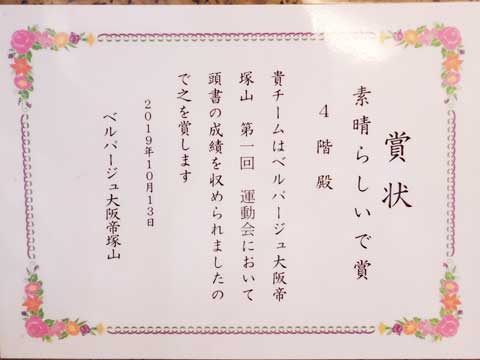 賞状
素晴らしいで賞
4階殿
貴チームはベルパージュ大阪帝
塚山 第一回 運動会において
頭書の成績を収められましたの
で之を賞します
2019年10月13日
ベルパージュ大阪帝塚山